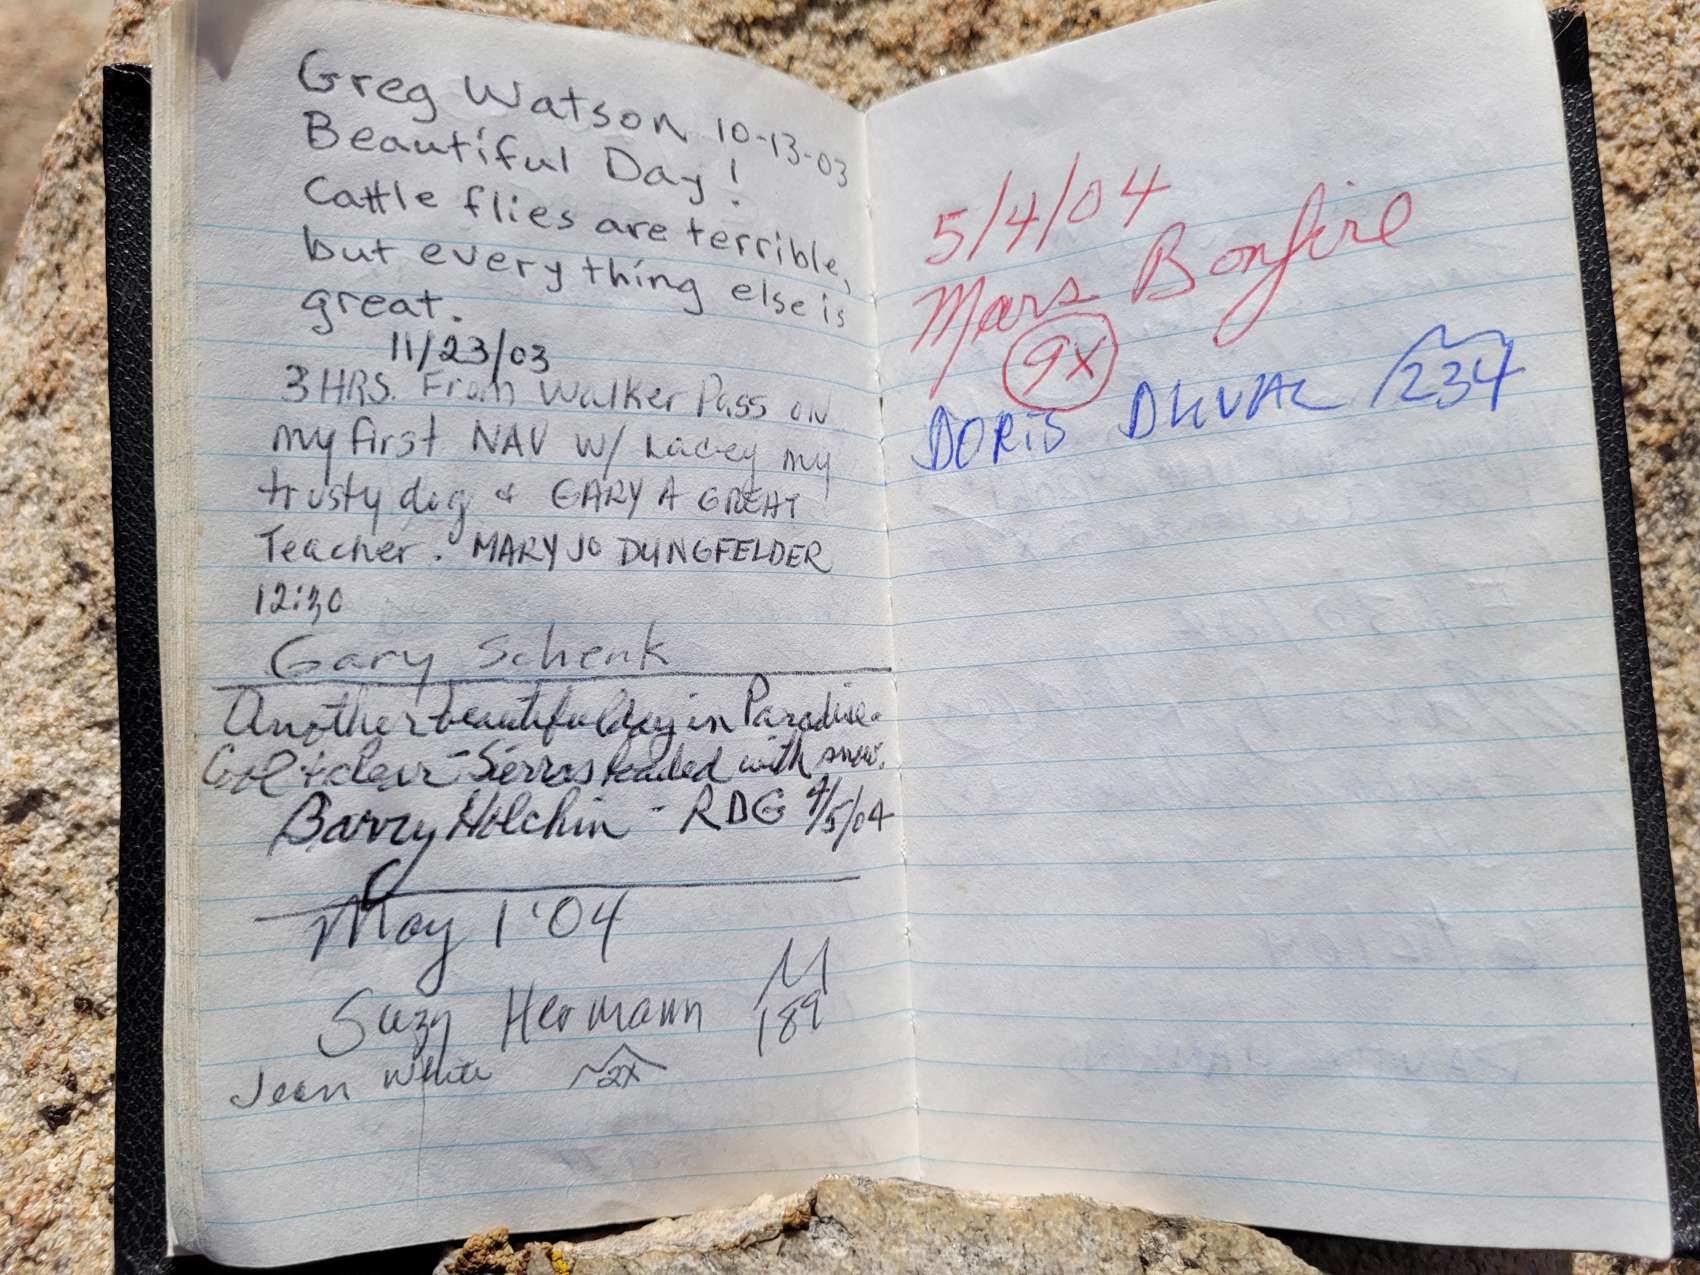 Greg Watson 10-13-03
Beautiful Day!
Cattle flies are terrible,
but everything else is
great.
11/23/03
3 HRS. From Walker Pass on
my first NAV W/ Lacey my
trusty dog & GARY A GREAT
Teacher. MARY JO DUNGFELDER
12:30
Gary Schenk
Another beautiful day in Paradise.
Cool & clear - Sierras loaded with snow.
Barry Holchin - RDG 4/5/04
May 1 '04
Suzy Hermann 189
Jean White 2X
5/4/04
Mars Bonfire
9X
DORIS DUVAL 234